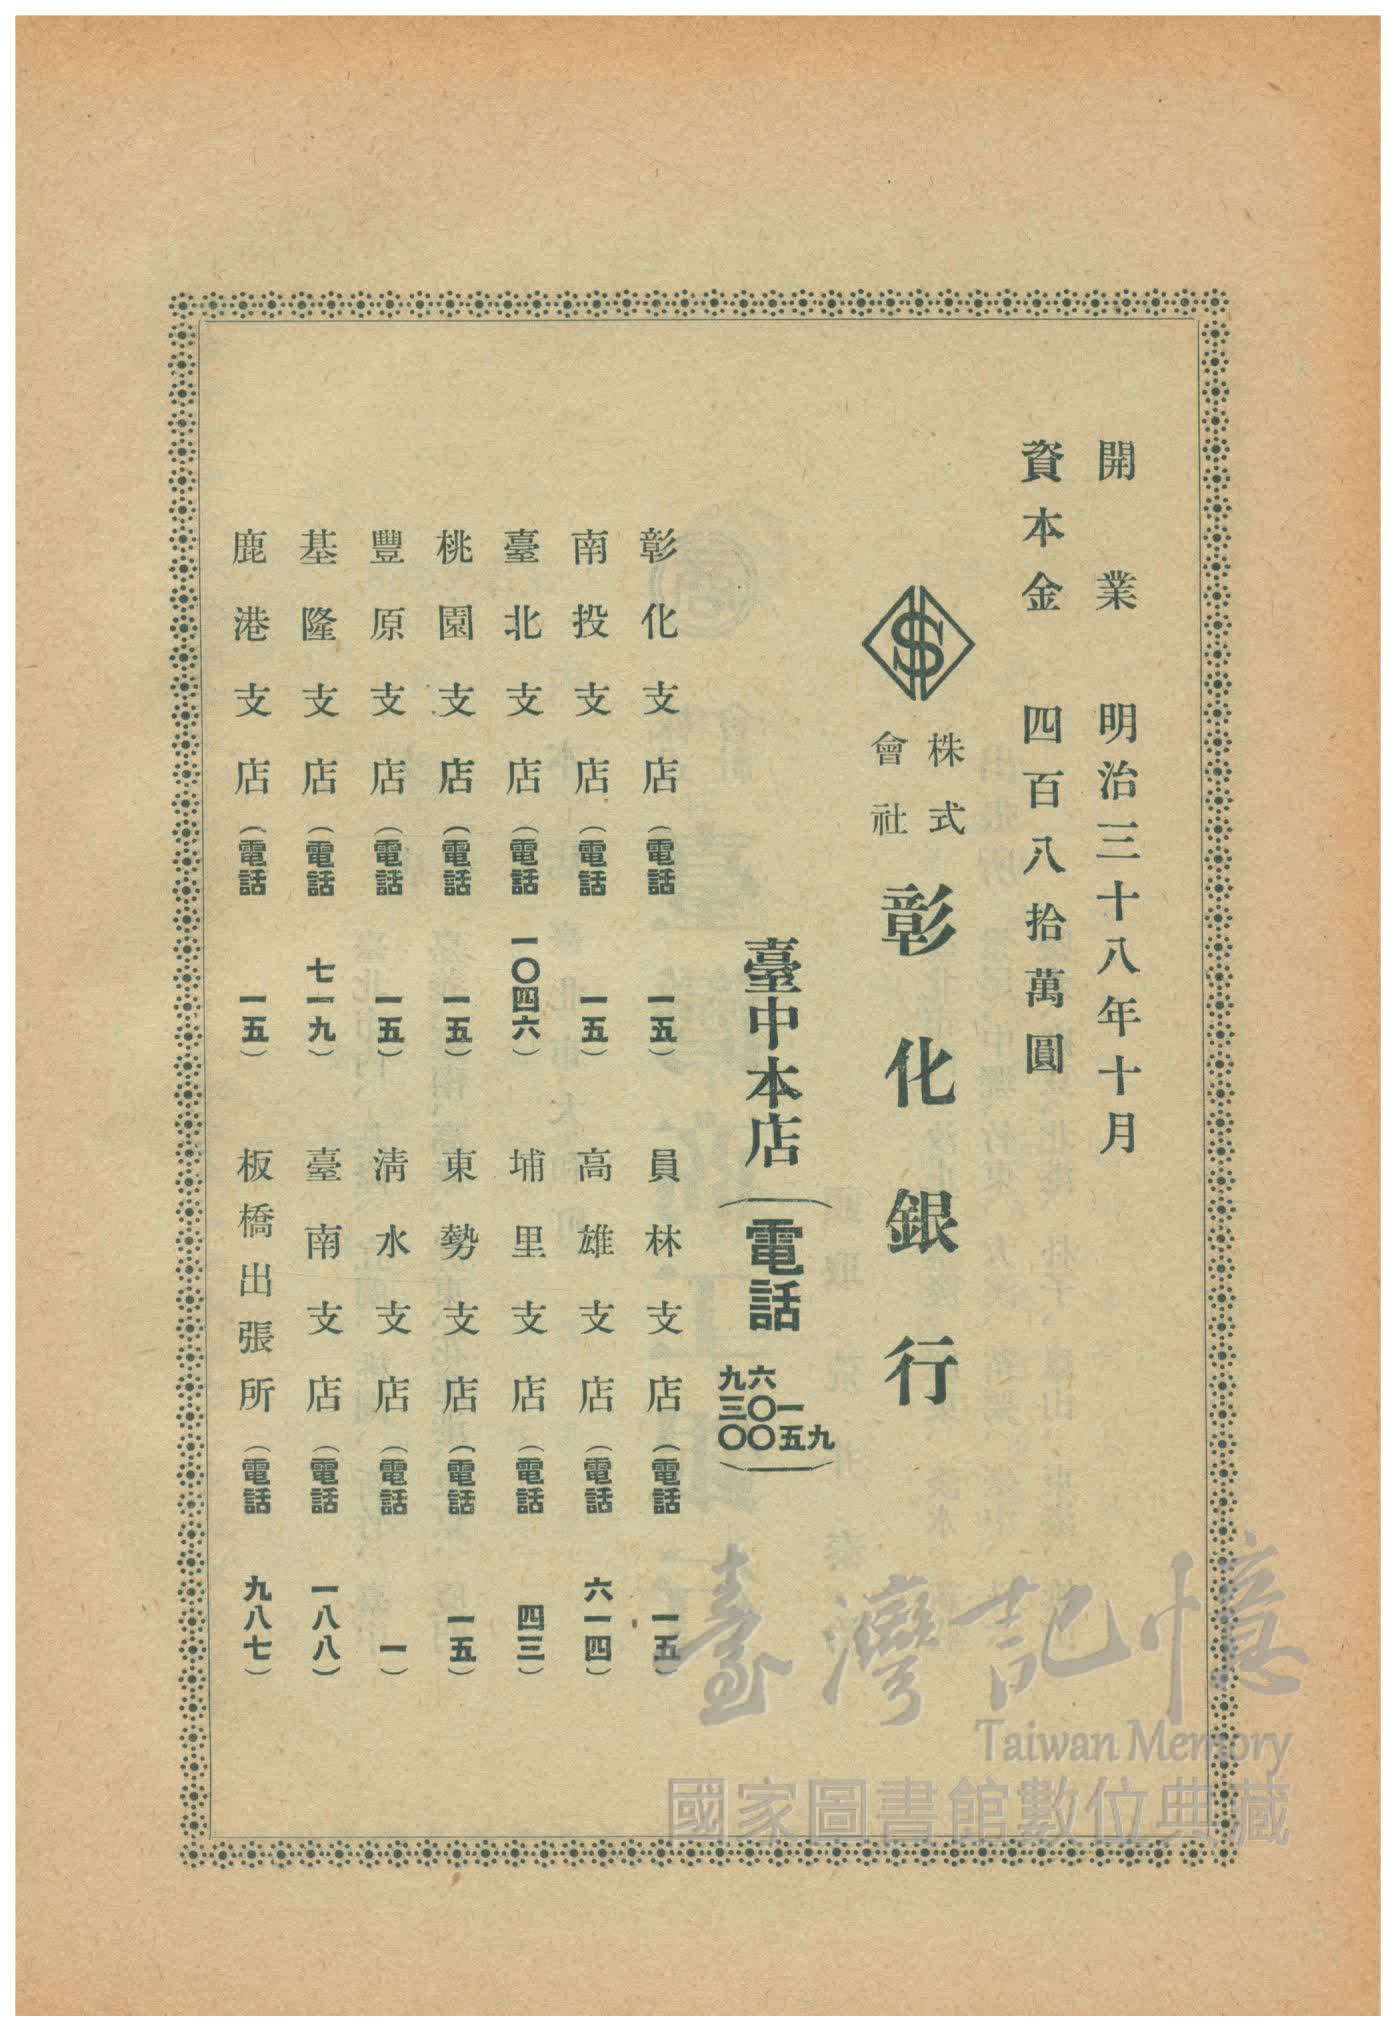 開業　明治三十八年十月
資本金　四百八拾萬圓
株式
會社
彰化銀行
臺中本店（電話
九
一五
六〇〇
九三〇）
彰化支店（電話　一五）
南投支店（電話　一五）
臺北支店（電話　一〇四六）
桃園支店（電話　一五）
豐原支店（電話　一五）
基隆支店（電話　七一九）
鹿港支店（電話　一五）
員林支店（電話　一五）
高雄支店（電話　六一四）
埔里支店（電話　四三）
東勢支店（電話　一五）
淸水支店（電話　一）
臺南支店（電話　一八八）
板橋出張所（電話　九八七）
臺灣記憶
Taiwan Memory
國家圖書館數位典藏